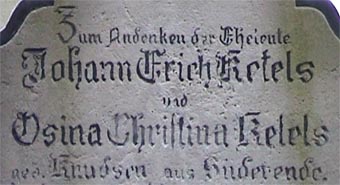 Zum Andenken der Eheleute
Johann Erich Ketels
und
Osina Christina Ketels
geb. Knudsen aus Süderende.